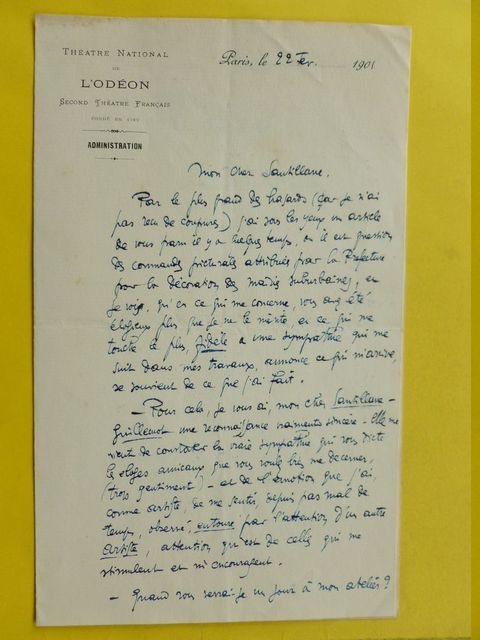 THÉÂTRE NATIONAL
DE
L'ODÉON
SECOND THÉÂTRE FRANÇAIS
FONDÉ EN
ADMINISTRATION
Paris, le 22 Fev. 1901
Mon cher Santillane.
Par le plus grand des hasards (car je n'ai
pas reçu de coupures) j'ai sous les yeux un article
de vous paru il y a quelque temps, où il est question
des commandes picturales attribuées par la Préfecture
pour la décoration des mairies suburbaines, et
je vois, qu'en ce qui me concerne, vous avez été
élogieux plus que je ne le mérite, et ce qui me
touche le plus, fidèle à une sympathie qui me
suit dans mes travaux, annonce ce qui m'arrive,
se souvient de ce que j'ai fait.
– Pour cela, je vous ai, mon cher Santillane-
Guillemot une reconnaissance vraiment sincère – Elle me
vient de constater la vraie sympathie qui vous dicte
les éloges amicaux que vous voulez bien me décerner,
(trop gentiment) – et de l'émotion que j'ai,
comme artiste, de me sentir, depuis pas mal de
temps, observé, entouré par l'attention d'un autre
artiste, attention qui est de celles qui me
stimulent et m'encouragent.
– Quand vous verrai-je un jour à mon atelier?